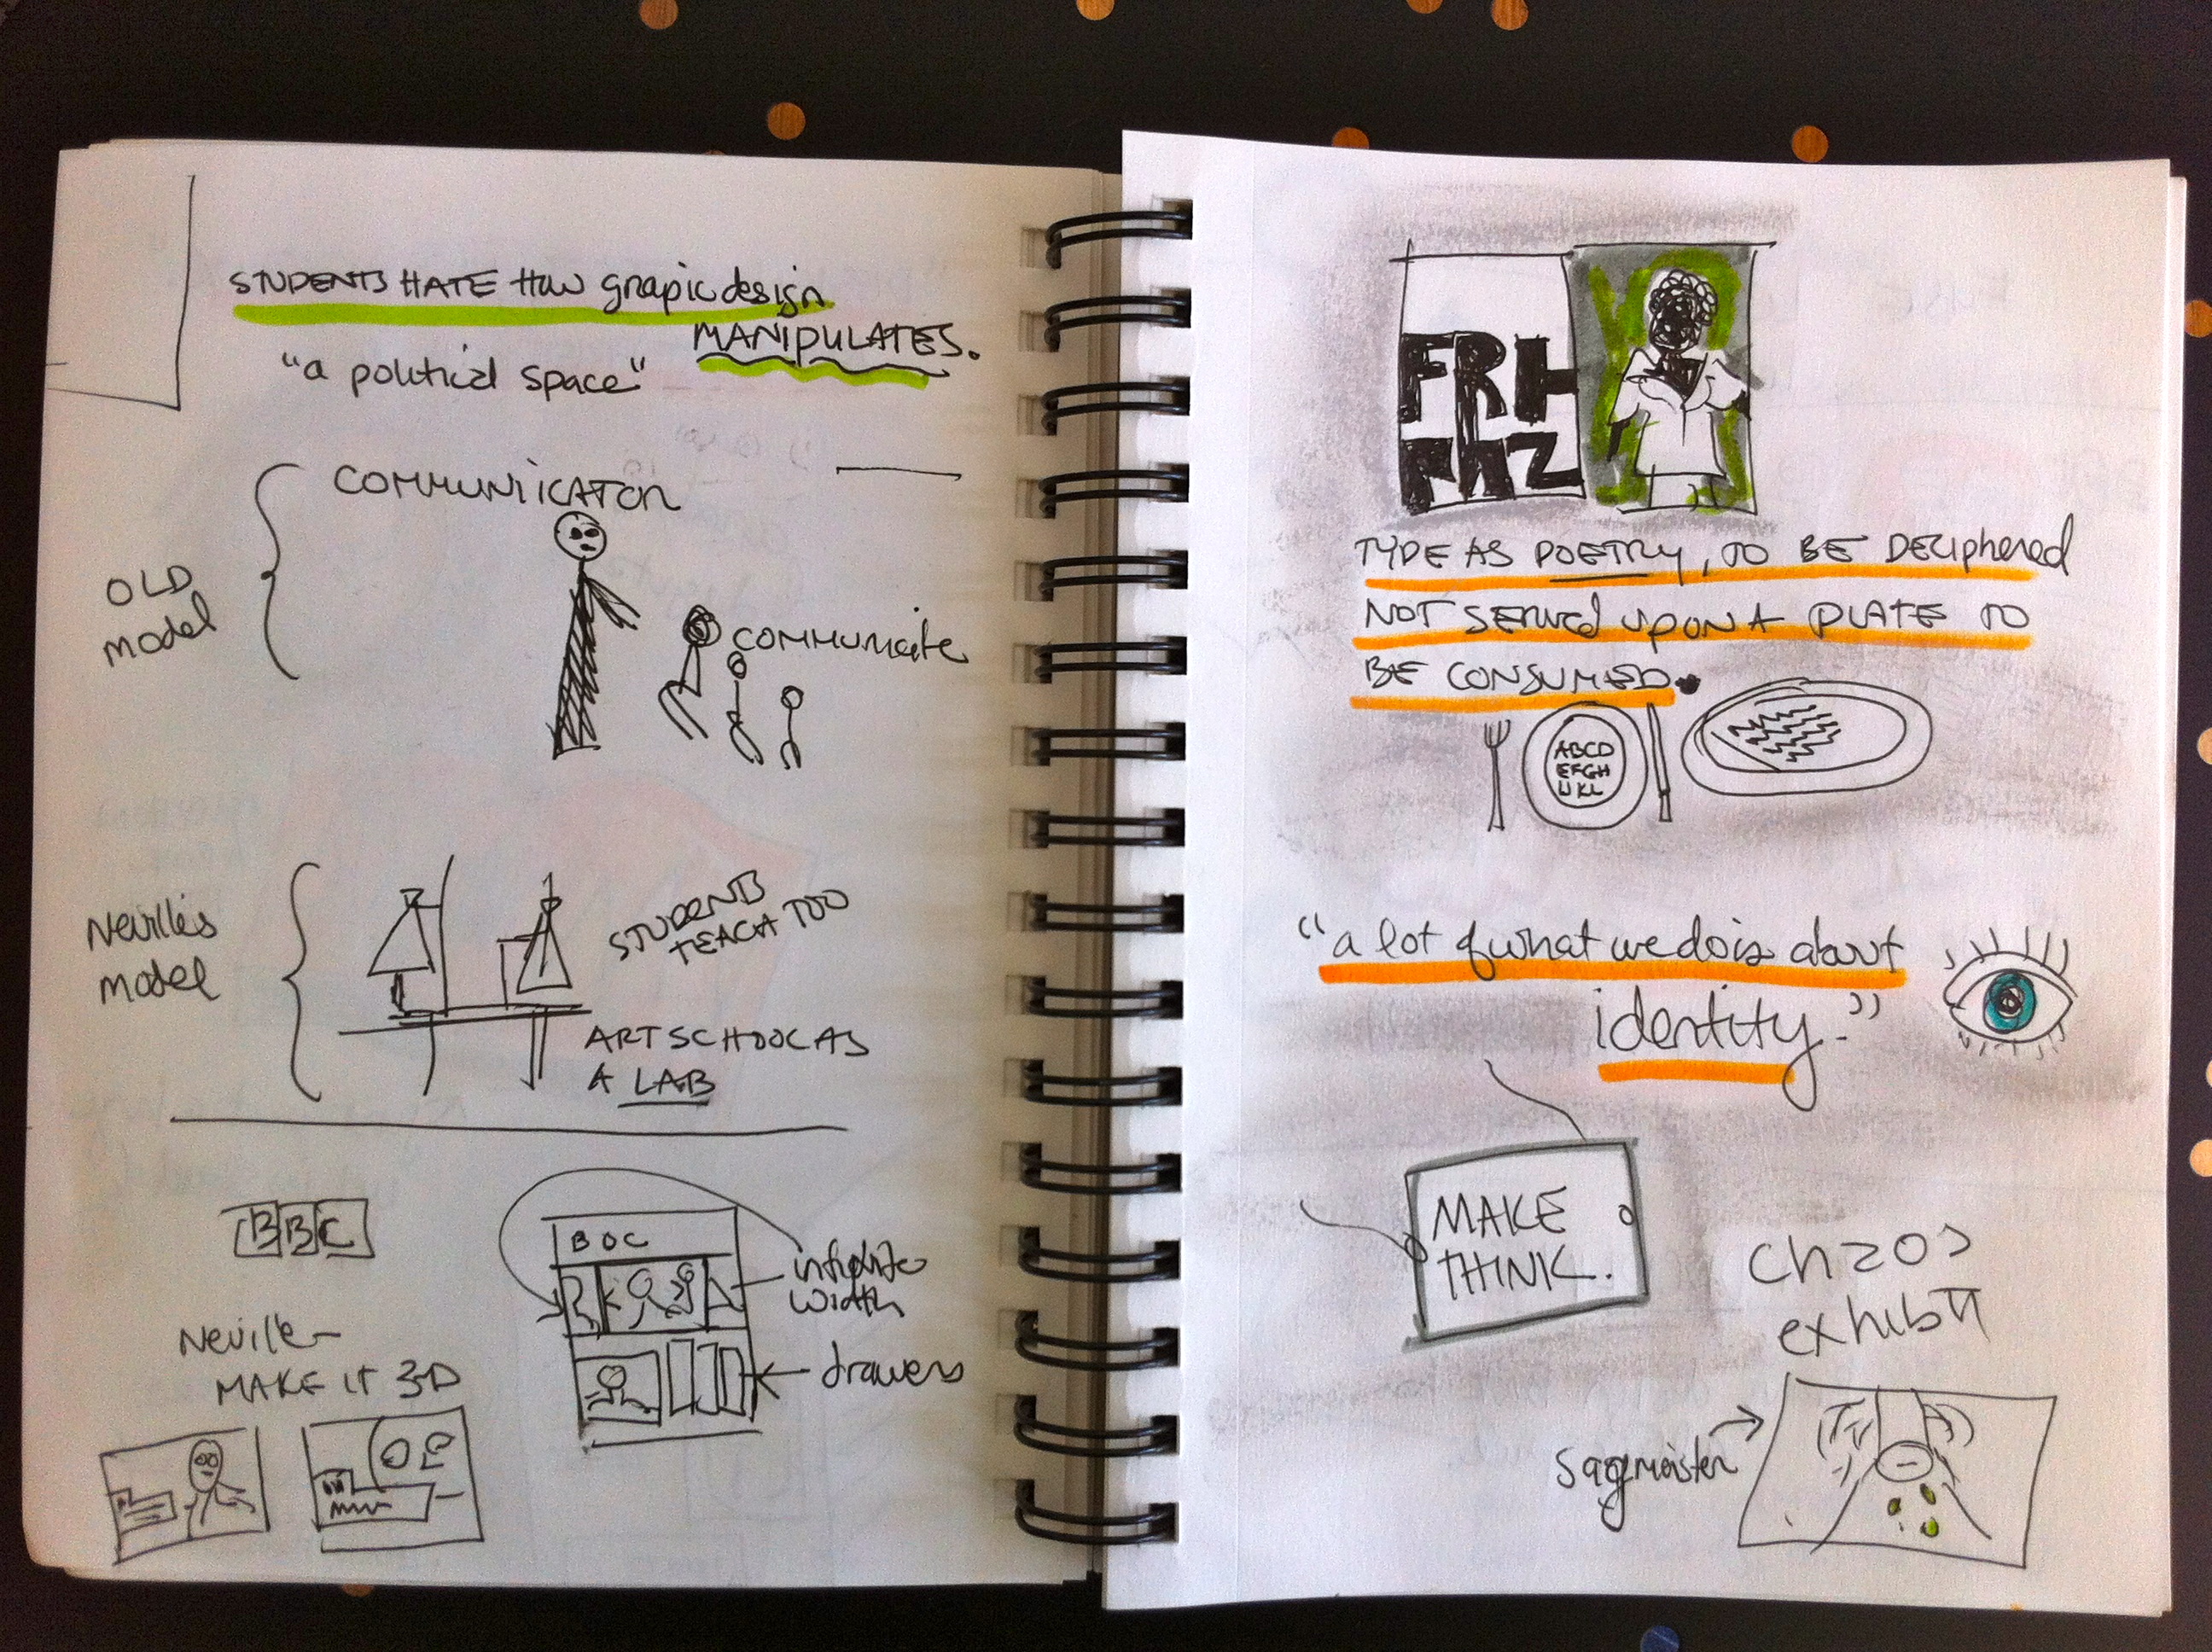 STUDENTS HATE HOW grapic design
MANIPULATES.
"a political space"
OLD
model
COMMUNIICATOR
COMMUNICATE
Neville's
model
STUDENTS
TEACH TOO
ART SCHOOL AS
A LAB
BBC
Neville-
MAKE IT 3D
BBC
infinite
width
drawers
FRH
TYPE AS POETRY, TO BE DECIPHERED
NOT SERVED UPON A PLATE TO
BE CONSUMED.
ABCD
EFGH
IJKL
"a lot of what we do is about
identity."
MAKE
THINK.
Chaos
exhibit
Sagmeister